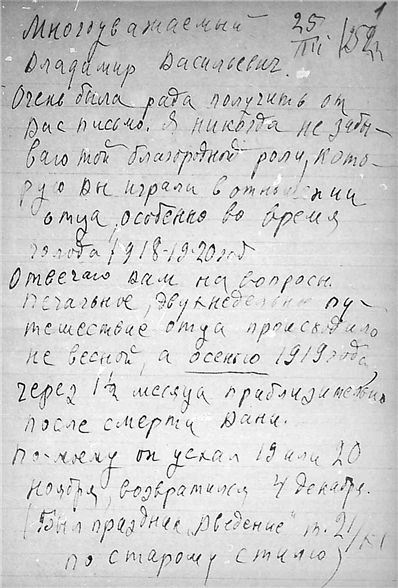 1
Многоуважаемый 25/III 1952 г.
Владимир Васильевич.
Очень была рада получить от
Вас письмо. Я никогда не забы-
ваю той благородной роли, кото-
рую Вы играли в отношении
отца, особенно во время
голода 1918-19-20 год
Отвечаю Вам на вопросы.
Печальное, двухнедельное пу-
тешествие отца происходило
не весной, а осенью 1919 года,
через 1½ месяца приблизительно
после смерти Вани.
По-моему он уехал 19 или 20
ноября, возвратился 4 декабря.
(Был праздник „Введение" т. 21/XI
по старому стилю)